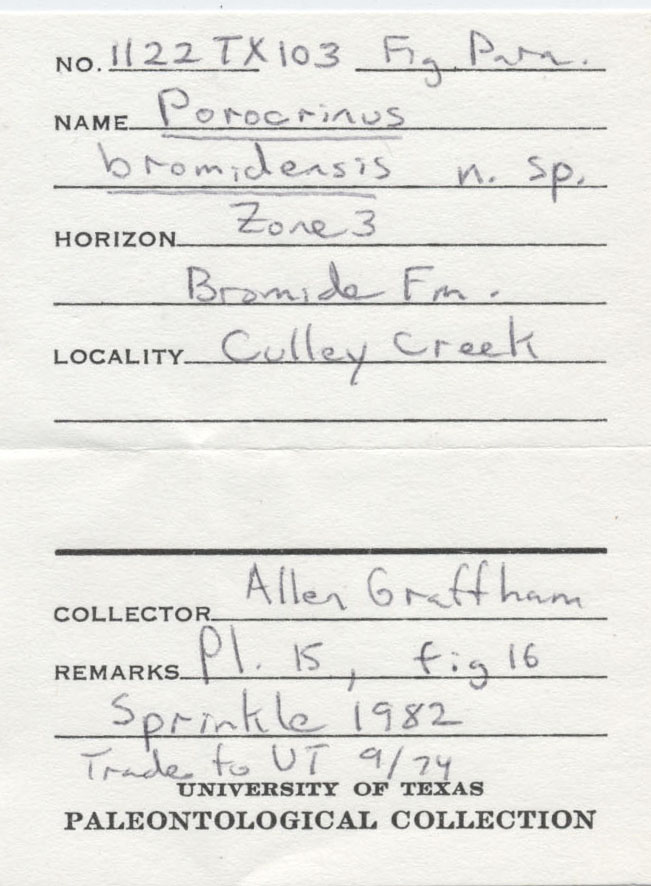 NO. 1122 TX 103 Fig. Para.
NAME Porocrinus
bromidensis n. sp.
HORIZON Zone 3
Bromide Fm.
LOCALITY Culley Creek
COLLECTOR Allen Graffham
REMARKS Pl. 15, fig 16
Sprinkle 1982
Trade to UT 9/74
UNIVERSITY OF TEXAS
PALEONTOLOGICAL COLLECTION